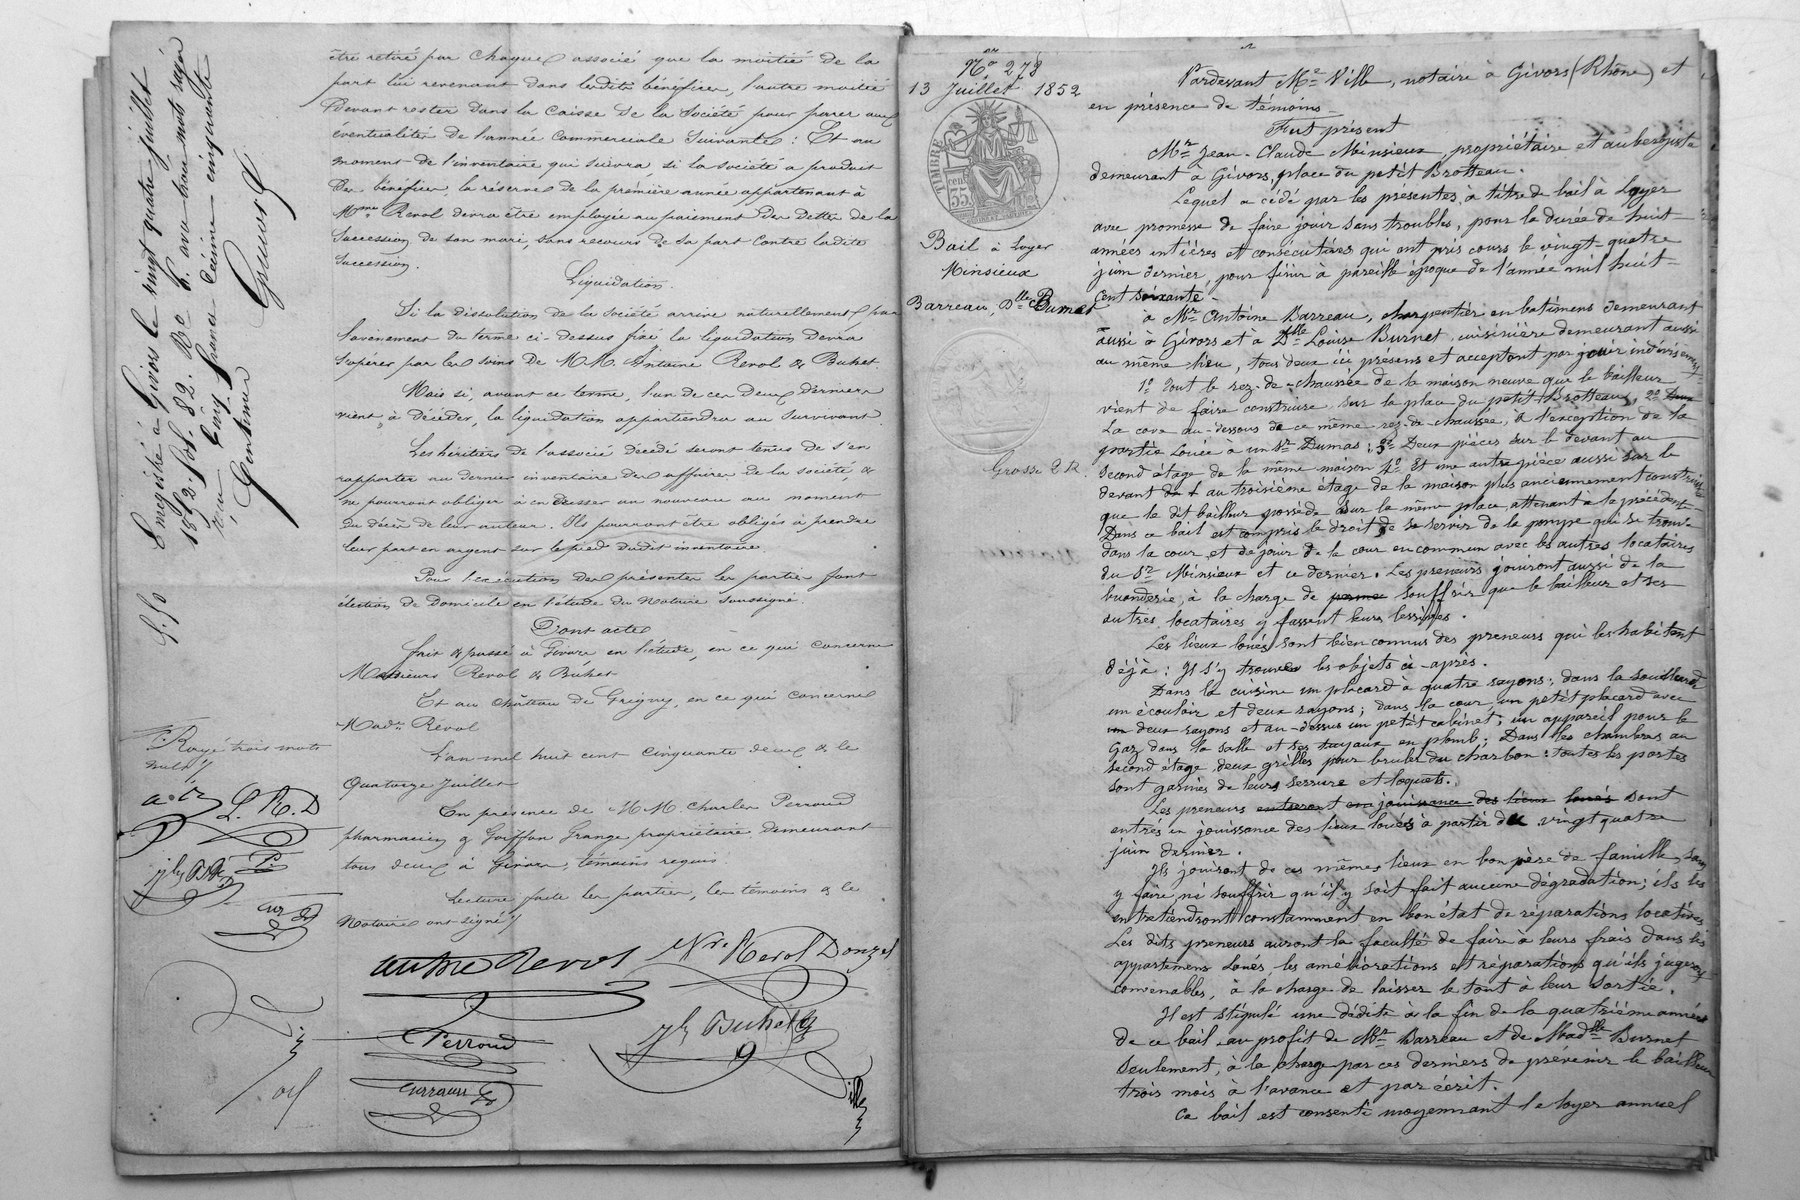 être retiré par chaque associé que la moitié de la
part lui revenant dans lesdits bénéfices, l'autre moitié
devant rester dans la caisse de la Société pour parer aux
éventualités de l'année commerciale suivante : Et au
moment de l'inventaire qui suivra, si la société a produit
des bénéfices, la réserve de la première année appartenant à
Mme Revol devra être employée au paiement des dettes de la
succession de son mari, sans recours de sa part contre ladite
succession.
Liquidation.
Si la dissolution de la société arrive naturellement par
l'avènement du terme ci-dessus fixé la liquidation devra
s'opérer par les soins de M.M. Antoine Revol & Buhet.
Mais si, avant ce terme, l'un de ces deux derniers
vient à décéder, la liquidation appartiendra au survivant
Les héritiers de l'associé décédé seront tenus de s'en
rapporter au dernier inventaire des affaires de la société, &
ne pourront obliger à en dresser un nouveau au moment
du décès de leur auteur. Ils pourront être obligés à prendre
leur part en argent sur le pied dudit inventaire.
Pour l'exécution des présentes les parties font
élection de domicile en l'étude du Notaire soussigné.
Dont acte
Fait & passé à Givors en l'étude, en ce qui concerne
Messieurs Revol & Buhet
Et au château de Grigny, en ce qui concerne
Made Revol
L'an mil huit cent cinquante deux & le
Quatorze Juillet
En présence de M.M. Charles Perroud
pharmacien & Goiffon Grange propriétaire demeurant
tous deux à Givors, témoins requis
Lecture faite les parties, les témoins & le
Notaire ont signé
Enregistré à Givors le vingt quatre juillet
1852. fol. 82. Ro C. avec trois mots rayés
reçu cinq francs décime cinquante
centimes
Rayé trois mots
nuls
L. R. D
antne Revol
Nve Revol Donzel
Perroud
Jh Buhet
Ville
No 278
13 Juillet 1852
TIMBRE
55
Bail à loyer
Minsieux
à
Barreau, Dlle Burnet
Grosse 2 R.
Pardevant Me Ville, notaire à Givors (Rhône) et
en présence de témoins
Fut présent
Mr Jean-Claude Minsieux, propriétaire et aubergiste
demeurant à Givors, place du petit Brotteau.
Lequel a cédé par les présentes, à titre de bail à loyer
avec promesse de faire jouir sans troubles, pour la durée de huit
années entières et consécutives qui ont pris cours le vingt-quatre
juin dernier, pour finir à pareille époque de l'année mil huit-
cent soixante.
à Mr Antoine Barreau, charpentier en batimens demeurant
aussi à Givors et à Dlle Louise Burnet, cuisinière demeurant aussi
au même lieu, tous deux ici présens et acceptant par jouir indivisément
1o Tout le rez-de-chaussée de la maison neuve que le bailleur
vient de faire construire sur la place du petit Brotteau, 2o Deux
La cave au-dessous de ce même rez-de-chaussée, à l'exception de la
partie Louée à un Sr Dumas ; 3o Deux pièces sur le devant au
second étage de la même maison 4o Et une autre pièce aussi sur le
devant du + au troisième étage de la maison plus anciennement construite
que le dit bailleur possède sur la même place, attenant à la précédente
Dans ce bail est compris le droit de se servir de la pompe qui se trouve
dans la cour et de jouir de la cour en commun avec les autres locataires
du Sr Minsieux et ce dernier. Les preneurs jouiront aussi de la
buanderie, à la charge de souffrir que le bailleur et ses
autres locataires y fassent leurs lessives.
Les lieux loués sont bien connus des preneurs qui les habitent
déjà : Il s'y trouve les objets ci-après.
Dans la cuisine un placard à quatre rayons ; dans la souillarde
un écouloir et deux rayons ; dans la cour, un petit placard avec
un deux rayons et au-dessus un petit cabinet ; un appareil pour le
Gaz dans la salle et ses tuyaux en plomb ; Dans les chambres au
second étage, deux grilles pour bruler du charbon : toutes les portes
sont garnies de leurs serrure et loquets.
Les preneurs entreront en jouissance des lieux loués sont
entrés en jouissance des lieux loués à partir du vingt quatre
juin dernier.
Ils jouiront de ces mêmes lieux en bon père de famille, sans
y faire, ni souffrir qu'il y soit fait aucune dégradation ; ils les
entretiendront constamment en bon état de réparations locatives
Les dits preneurs auront la faculté de faire à leurs frais dans les
appartemens Loués, les améliorations et réparations qu'ils jugeront
convenables, à la charge de laisser le tout à leur sortie.
Il est stipulé une dédite à la fin de la quatrième année
de ce bail au profit de Mr Barreau et de Madlle Burnet
seulement, à la charge par ces derniers de prévenir le bailleur
trois mois à l'avance et par écrit.
Ce bail est consenti moyennant le loyer annuel